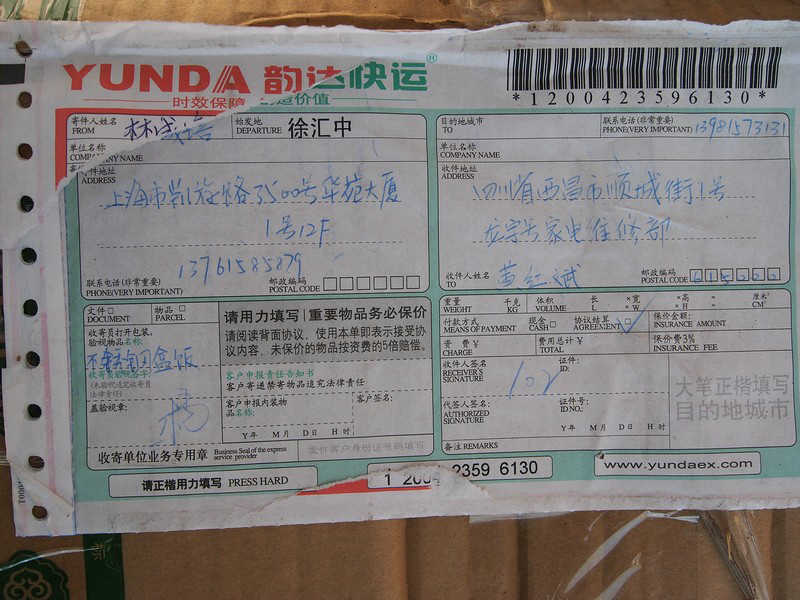 YUNDA 韵达快运
时效保障 造价值
*1200423596130*
寄件人姓名 FROM 始发地 DEPARTURE 徐汇中
单位名称
COMPANY NAME
ADDRESS
上海市 路3500号华苑大厦
1号12F
13761585879
联系电话(非常重要)
PHONE(VERY IMPORTANT)
邮政编码
POSTAL CODE
目的地城市
TO
联系电话(非常重要)
PHONE(VERY IMPORTANT) 13981573131
单位名称
COMPANY NAME
收件地址
ADDRESS
四川省西昌市顺城街1号
家电维修部
收件人姓名
TO 黄红斌
邮政编码
POSTAL CODE 615000
文件□
DOCUMENT
物品□
PARCEL
收寄员打开包装,
验视物品名称:
不锈钢盒饭
盖验视章:
请用力填写|重要物品务必保价
请阅读背面协议、使用本单即表示接受协
议内容、未保价的物品按资费的5倍赔偿。
客户申报责任告知书
客户寄递禁寄物品追究法律责任
客户申报内装物
品名称:
客户签名:
Y年 M月 D日 H时
收寄单位业务专用章 Business Seal of the express service provider
重量
WEIGHT
千克
KG
体积
VOLUME
长
L
×宽
×W
×高
×H
=
厘米³
CM³
付款方式
MEANS OF PAYMENT
现金□
CASH
协议结算
AGREEMENT
保价金额:
INSURANCE AMOUNT
资费 ¥
CHARGE
费用总计 ¥
TOTAL
保价费3%
INSURANCE FEE
收件人签名
RECEIVER'S
SIGNATURE
102
证件:
ID:
代签人签名:
AUTHORIZED
SIGNATURE
证件号:
ID NO.:
Y年 M月 D日 H时
大笔正楷填写
目的地城市
备注 REMARKS
请正楷用力填写 PRESS HARD
1 200 2359 6130
www.yundaex.com